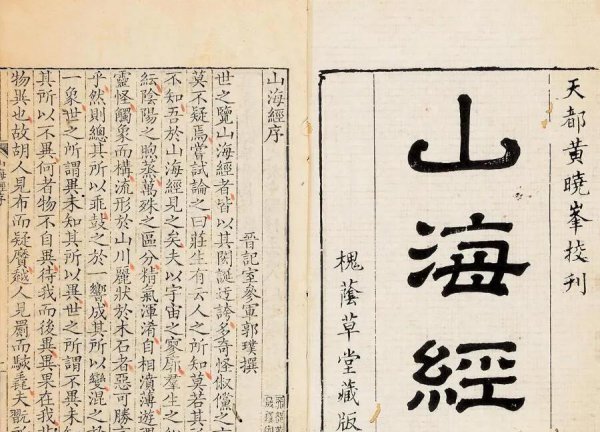 天都黄曉峯校刊
山海經
槐蔭草堂藏版
山海經序
晉記室參軍郭璞撰
世之覽山海經者皆以其閎誕迃誇多奇怪俶儻之
莫不疑焉嘗試論之曰莊生有云人之所知莫若其
不知吾於山海經見之矣夫以宇宙之寥廓羣生之
紜陰陽之煦蒸萬殊之區分精氣渾淆自相濆薄遊
靈怪觸象而構流形於山川麗狀於木石者惡可勝
乎然則總其所以乖鼓之於一響成其所以變混之
一象世之所謂異未知其所以異世之所謂不異未
其所以不異何者物不自異待我而後異異果在我
物異也故胡人見布而疑黂越人見罽而駭毳夫翫
山海經序